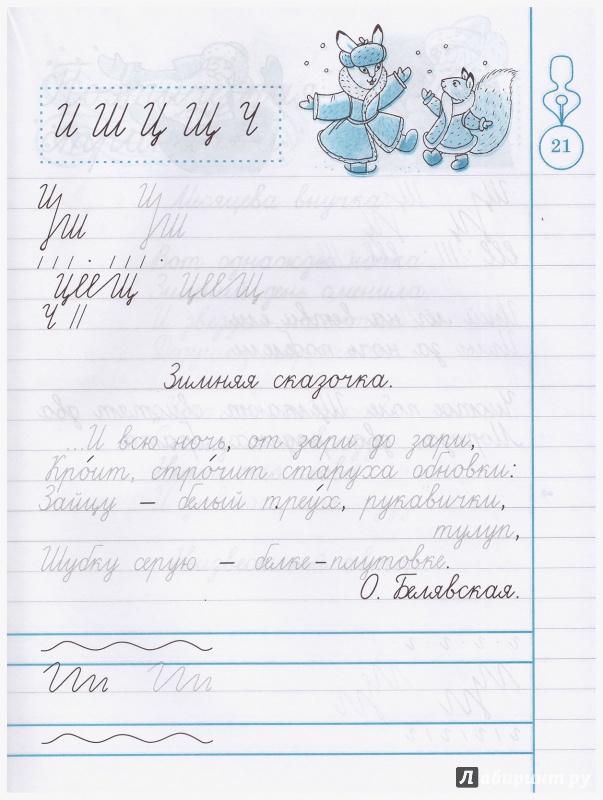 И Ш Ц Щ Ч
21
Зимняя сказочка.
...И всю ночь, от зари до зари,
Кро́ит, стро́чит старуха обновки:
Зайцу — белый треу́х, рукавички,
тулуп,
Шубку серую — белке-плутовке.
О. Белявская.
Лабиринт.ру